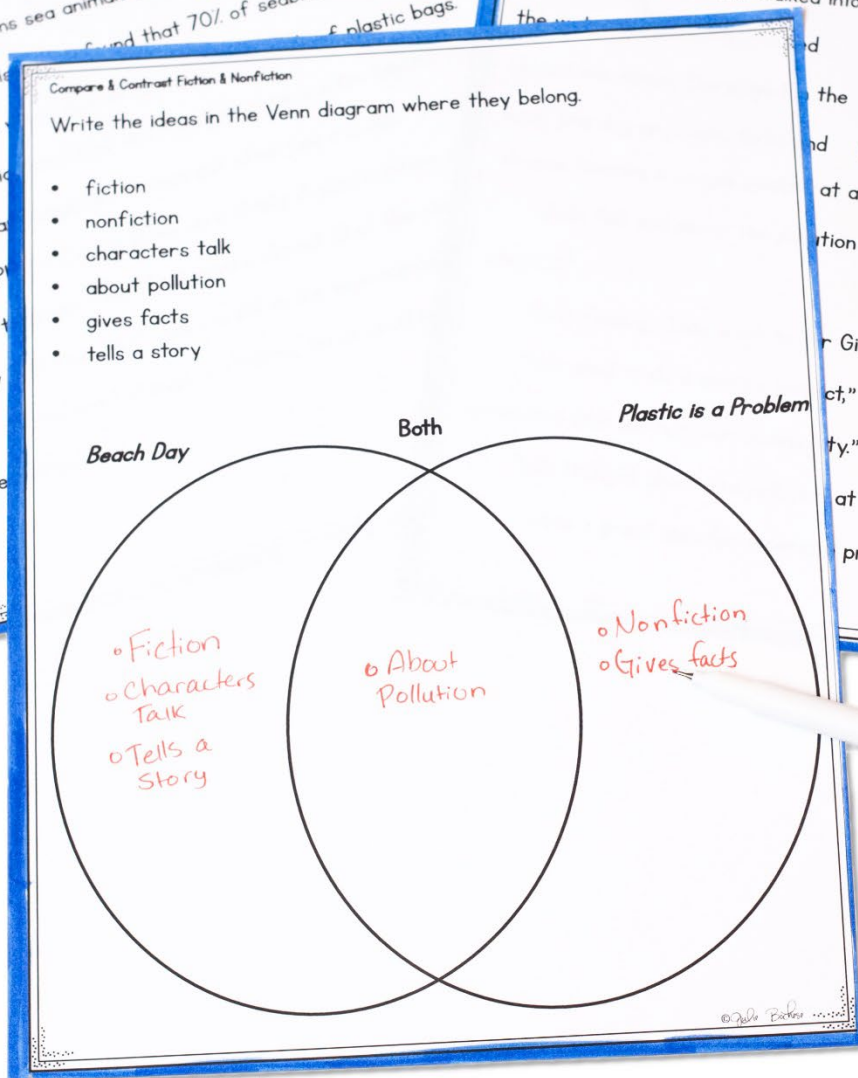 ns sea
found that 70% of
plastic bags.
the
d
the
nd
at a
r Gi
ct,"
ty."
at
Compare & Contrast Fiction & Nonfiction
Write the ideas in the Venn diagram where they belong.
• fiction
• nonfiction
• characters talk
• about pollution
• gives facts
• tells a story
Beach Day
Both
Plastic is a Problem
Fiction
Characters
Talk
Tells a
Story
About
Pollution
Nonfiction
Gives facts